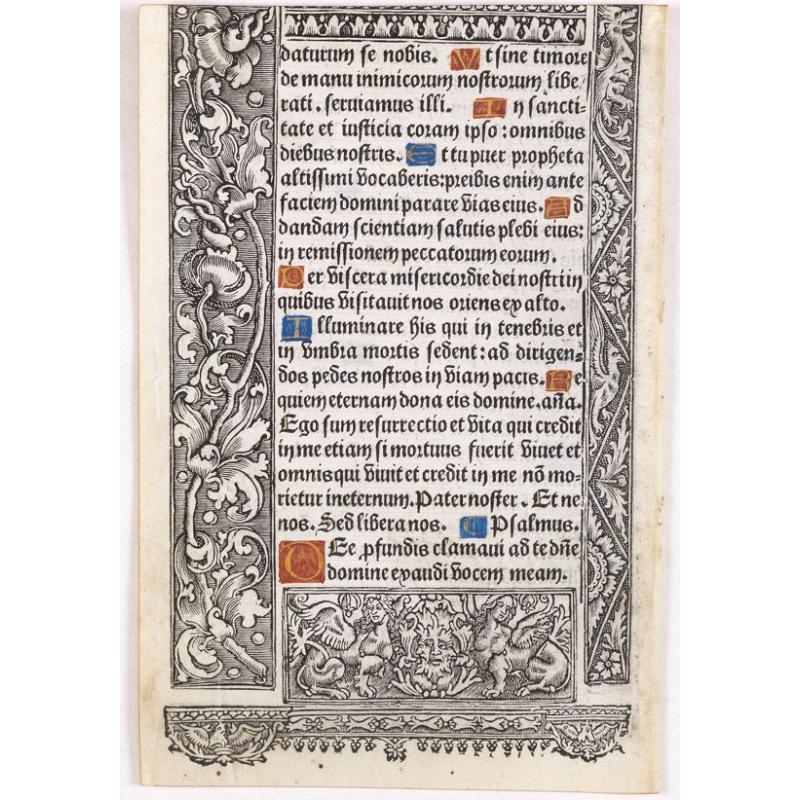 daturum se nobis. Ut sine timore
de manu inimicorum nostrorum libe-
rati. seruiamus illi. In sancti-
tate et iusticia coram ipso: omnibus
diebus nostris. Et tu puer propheta
altissimi vocaberis: preibis enim ante
faciem domini parare vias eius. Ad
dandam scientiam salutis plebi eius:
in remissionem peccatorum eorum.
Per viscera misericordie dei nostri in
quibus visitauit nos oriens ex alto.
Illuminare his qui in tenebris et
in vmbra mortis sedent: ad dirigen-
dos pedes nostros in viam pacis. Re
quiem eternam dona eis domine. añа.
Ego sum resurrectio et vita qui credit
in me etiam si mortuus fuerit viuet et
omnis qui viuit et credit in me nõ mo-
rietur ineternum. Pater noster. Et ne
nos. Sed libera nos. Psalmus.
De ꝓfundis clamaui ad te dñe
domine exaudi vocem meam.